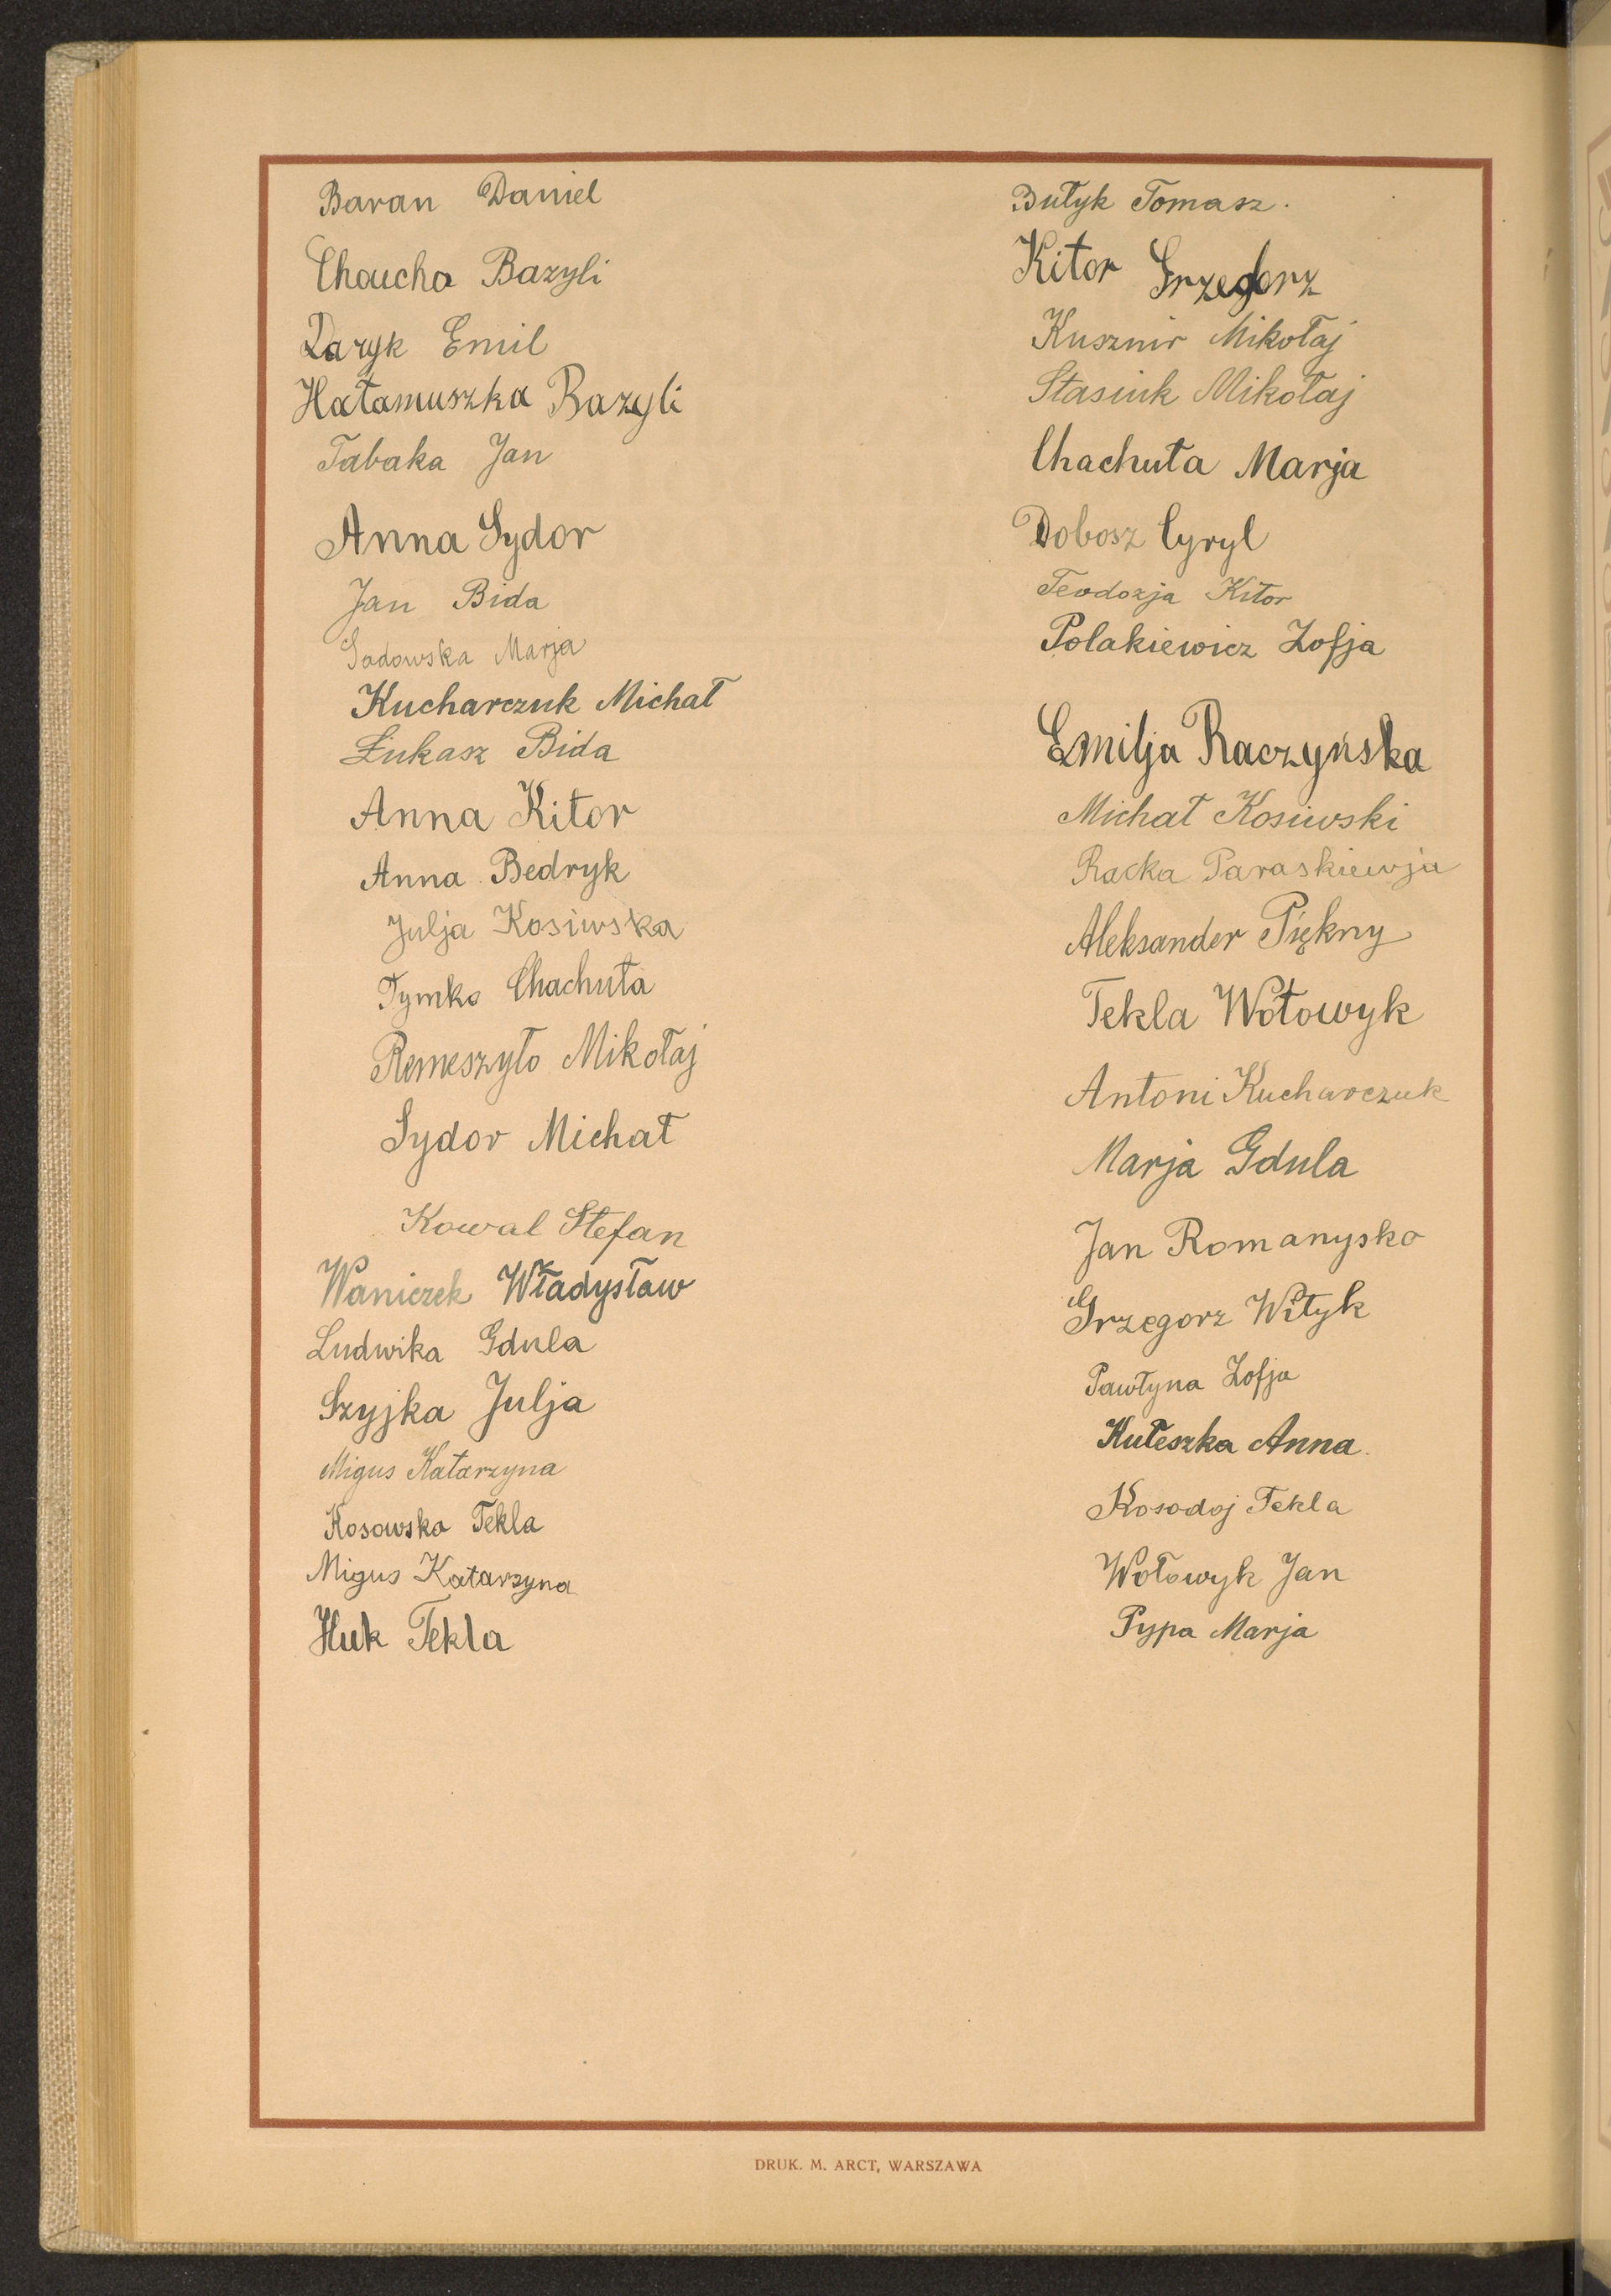 Baran Daniel
Chaucha Bazyli
Laryk Emil
Hałamuszka Bazyli
Tabaka Jan
Anna Sydor
Jan Bida
Sadowska Marja
Kucharczuk Michał
Łukasz Bida
Anna Kitor
Anna Bedryk
Julja Kosiwska
Tymko Chachuła
Remeszyło Mikołaj
Sydor Michał
Kowal Stefan
Waniczek Władysław
Ludwika Gdula
Szyjka Julja
Migus Katarzyna
Kosowska Tekla
Migus Katarzyna
Huk Tekla
Butyk Tomasz.
Kitor Grzegorz
Kusznir Mikołaj
Stasiuk Mikołaj
Chachuła Marja
Dobosz Cyryl
Teodozja Kitor
Polakiewicz Zofja
Emilja Raczyńska
Michał Kosiwski
Racka Paraskiewja
Aleksander Piękny
Tekla Wołowyk
Antoni Kucharczuk
Marja Gdula
Jan Romanysko
Grzegorz Wityk
Pawłyna Zofja
Kułeszka Anna.
Kosodoj Tekla
Wołowyk Jan
Pypa Marja
DRUK. M. ARCT, WARSZAWA